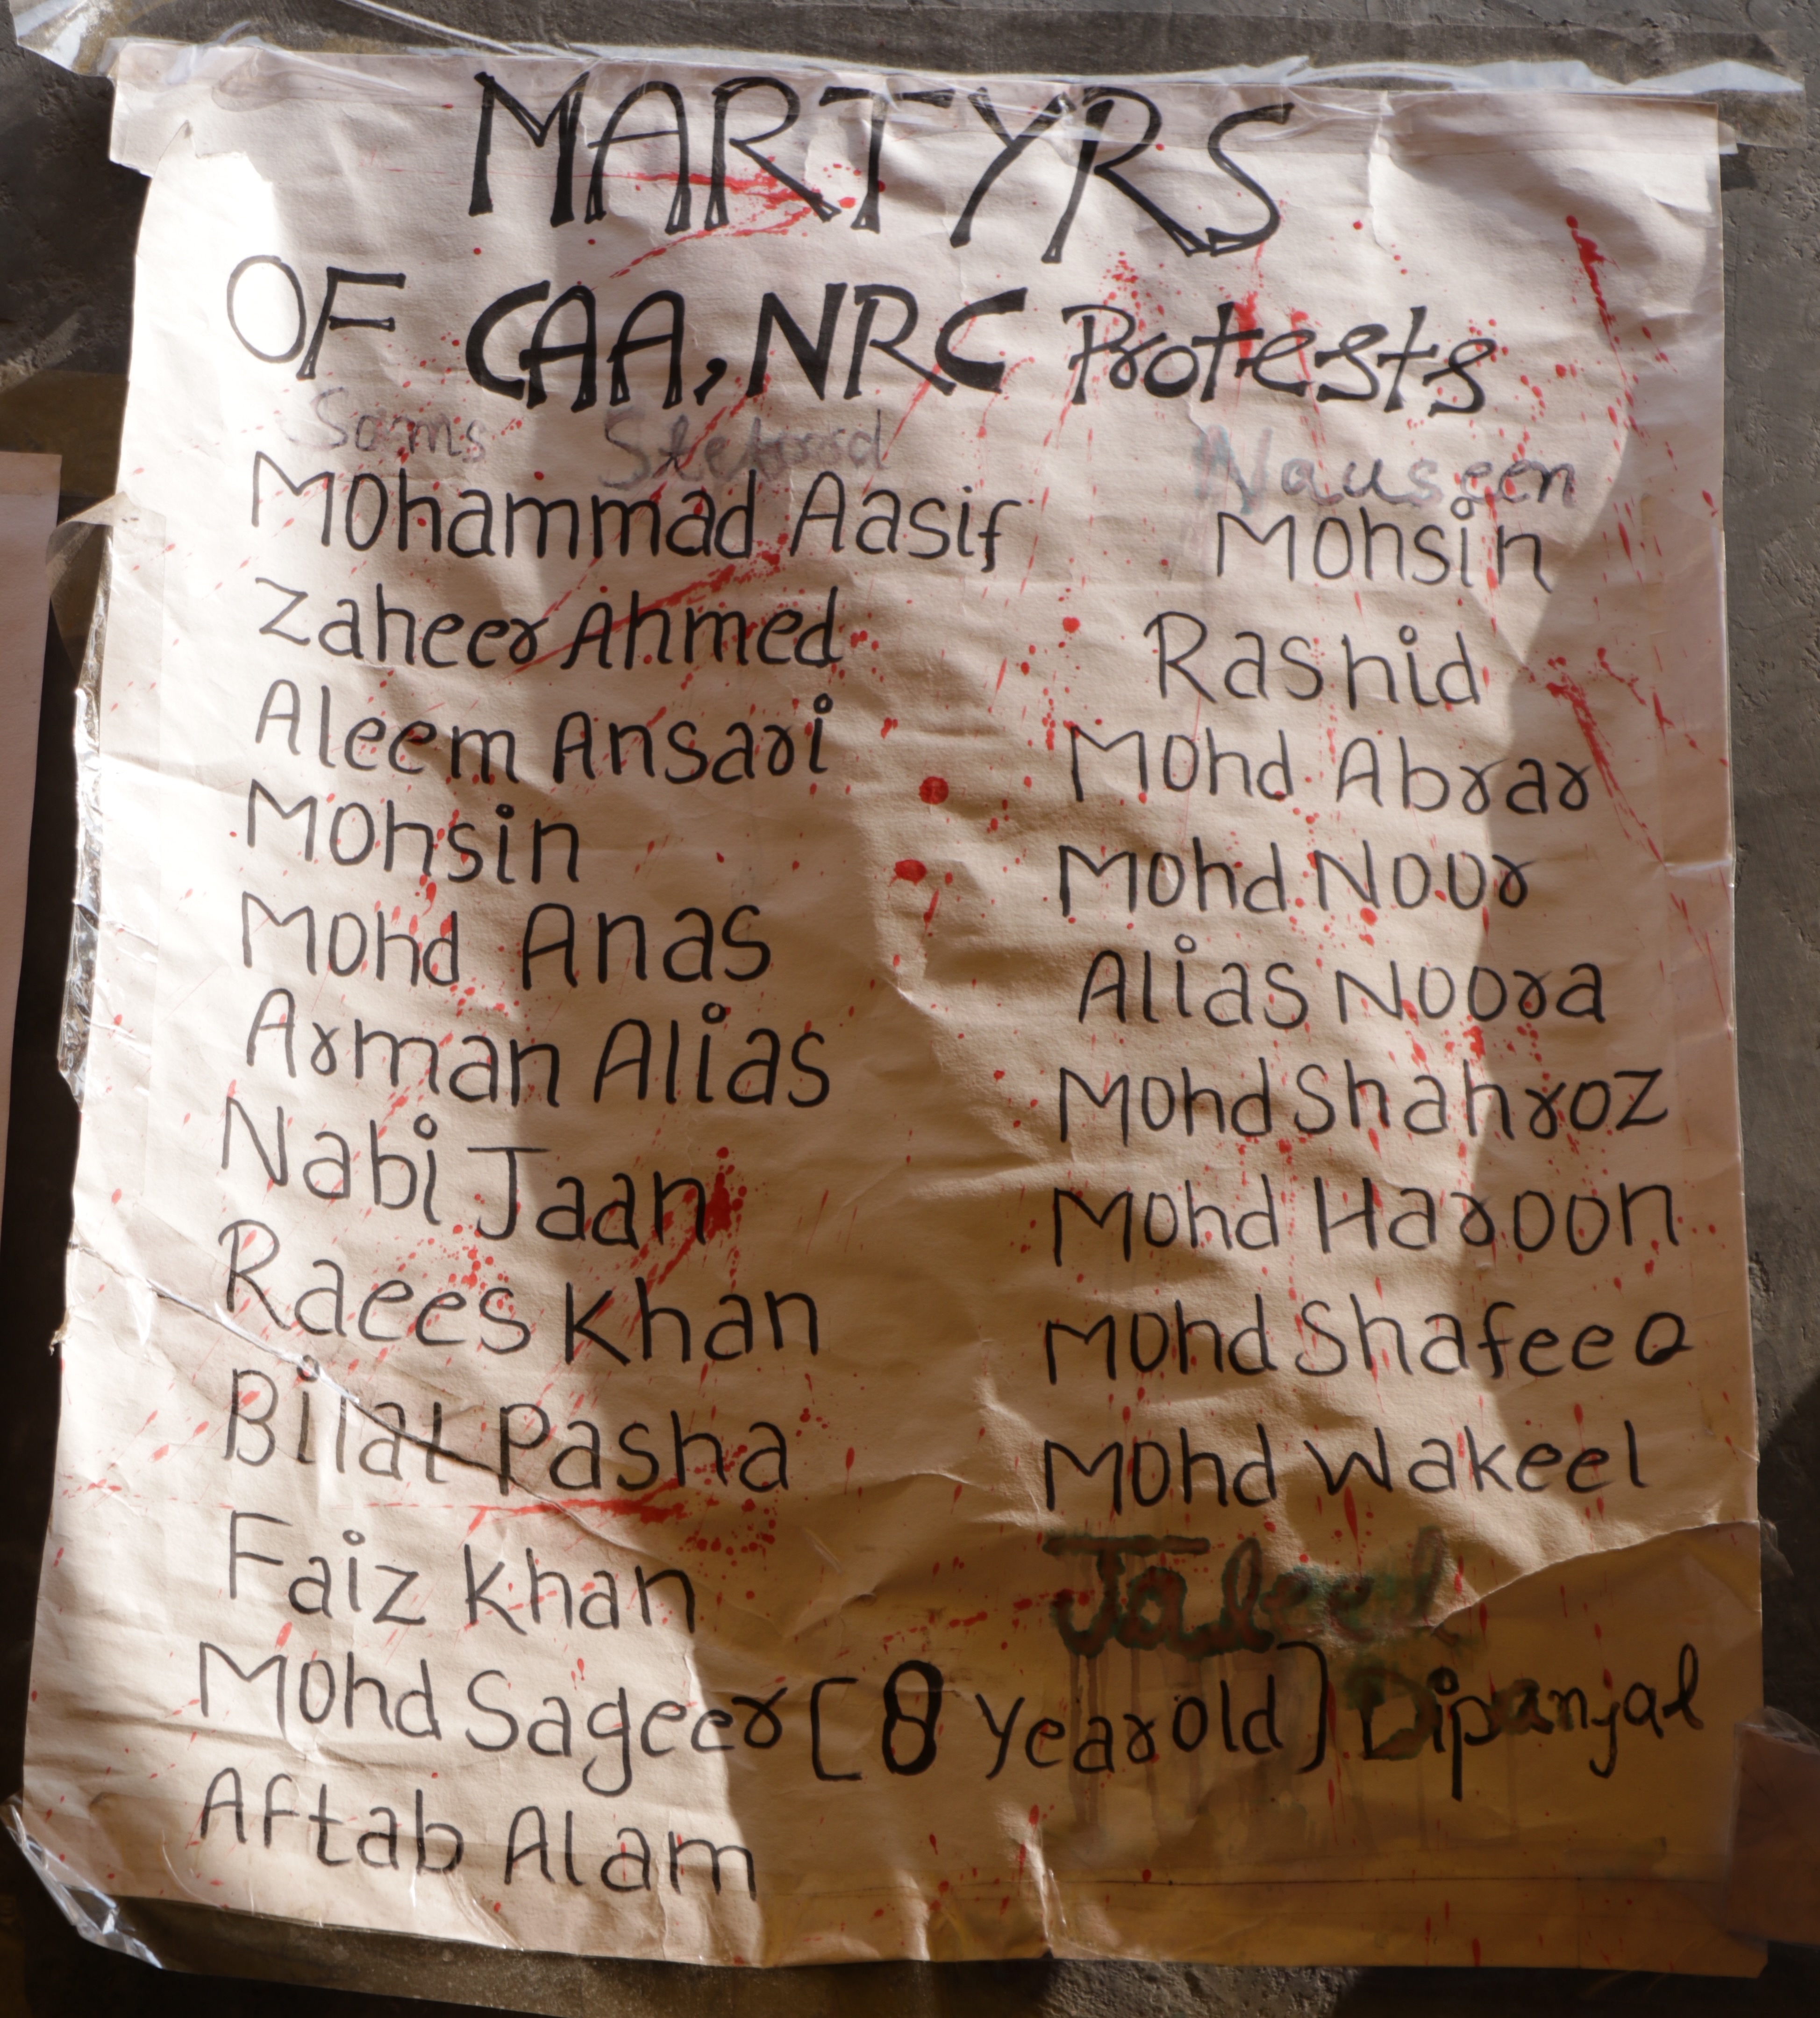 MARTYRS
OF CAA, NRC Protests
Sams
Mohammad Aasif
Zaheer Ahmed
Aleem Ansari
Mohsin
Mohd Anas
Arman Alias
Nabi Jaan
Raees Khan
Bilal Pasha
Faiz Khan
Mohd Sageer [8 Year old]
Aftab Alam
Nauseen
Mohsin
Rashid
Mohd Abrar
Mohd Noor
Alias Noora
Mohd Shahroz
Mohd Haroon
Mohd ShafeeQ
Mohd Wakeel
Jaleel
Dipanjal